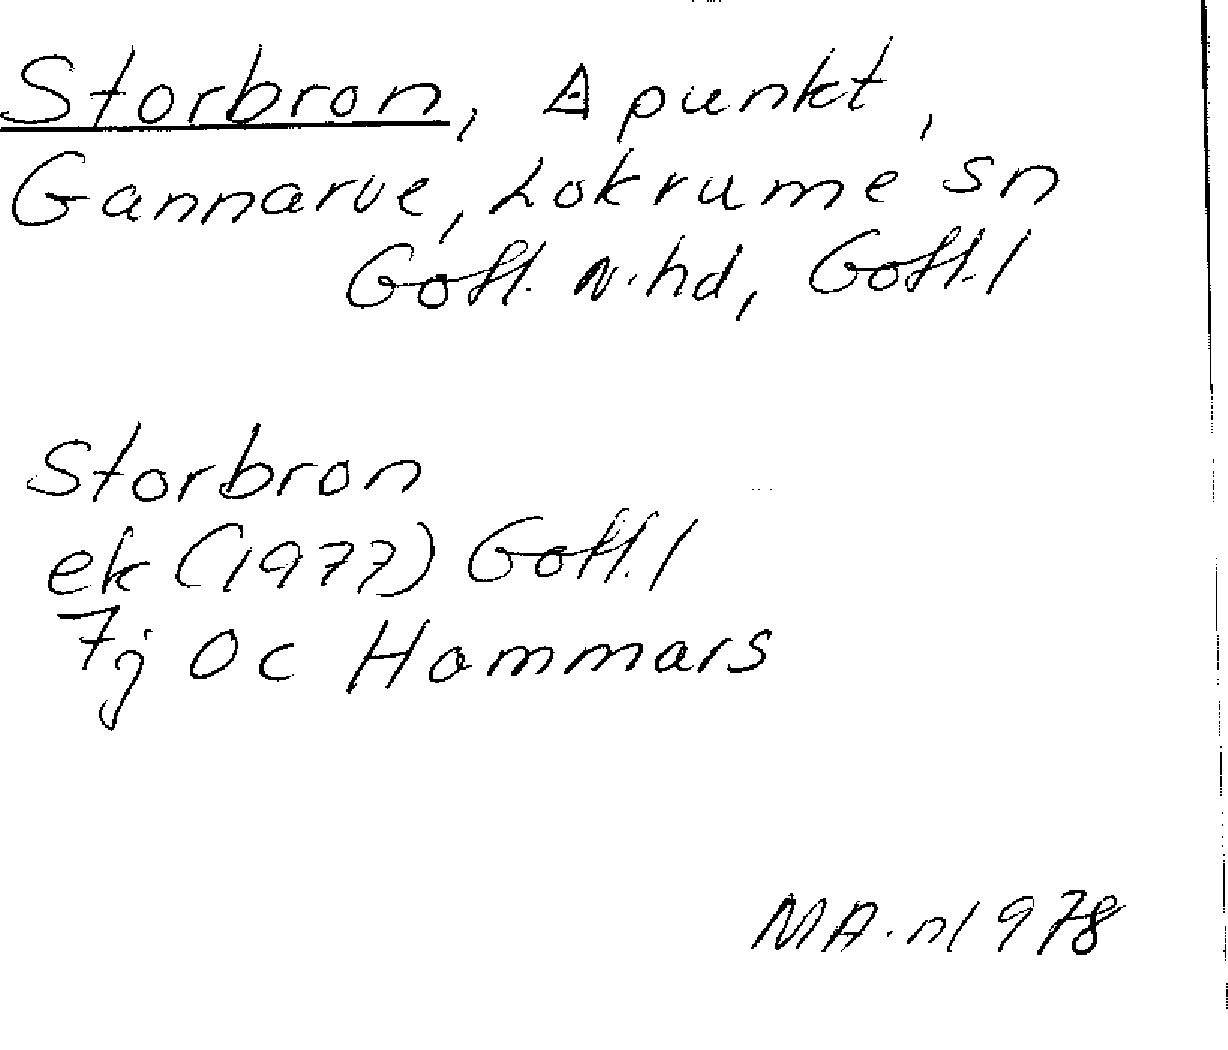 Storbron, ◬ punkt,
Gannarve, Lokrume sn
Gotl. N. hd, Gotl. l
Storbron
ek (1977) Gotl. l
7j 0c Hammars
MA. n 1978